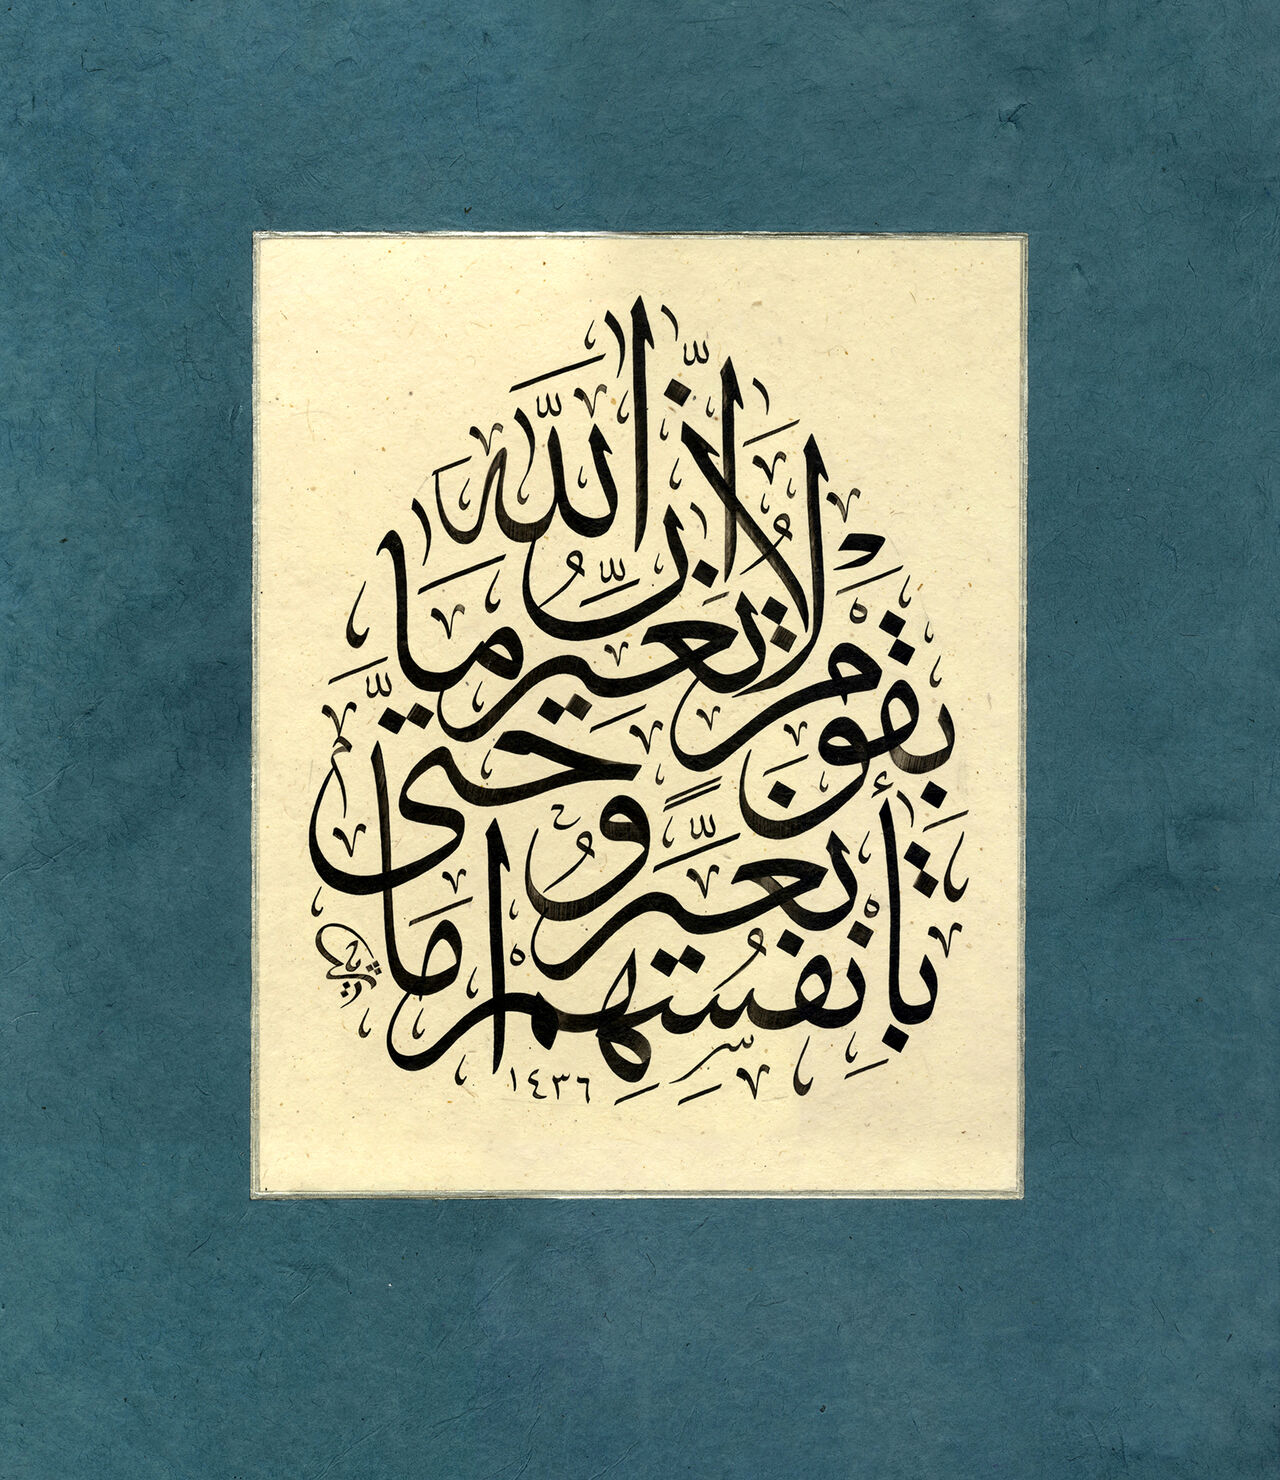 إِنَّ اللَّهَ لَا يُغَيِّرُ مَا بِقَوْمٍ حَتَّى يُغَيِّرُوا مَا بِأَنْفُسِهِمْ
١٤٣٦